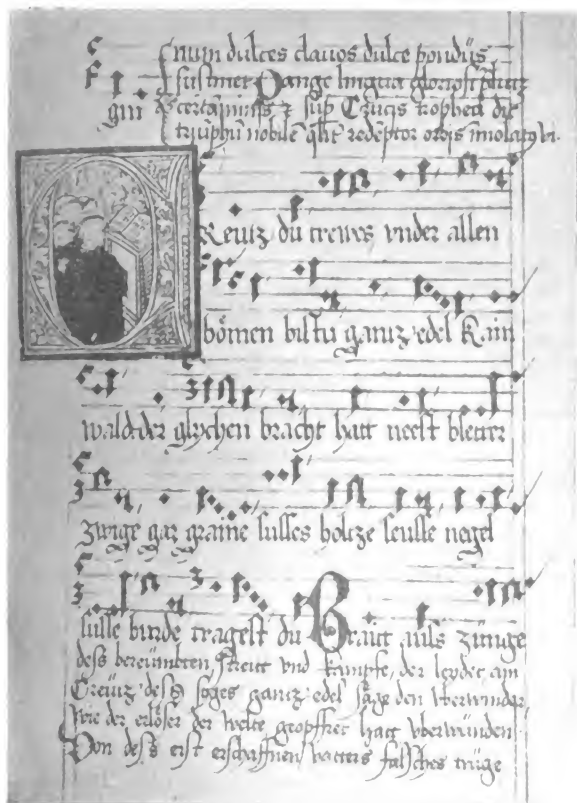 num dulces clauos dulce pondus
sustinet Pange lingua gloriosi
gni
certaminis z sup Crucis tropheū dic
triūphū nobile qlit redeptor orbis
Creutz du trewes vnder allen
bömen bistu gantz edel Kain
wald der glychen bracht hatt neest bletter
zwige gaz graine susses holtze seusse negel
susse burde tragest du Braut auss zunge
dess bereumbten streitt vnd kampfe, der leyder am
Creutz dess syges gantz edel sage den vberwinder
wie der erlöser der welte geopffret hatt vberwunden
Von dess erst erschaffnen vatters falsches truge